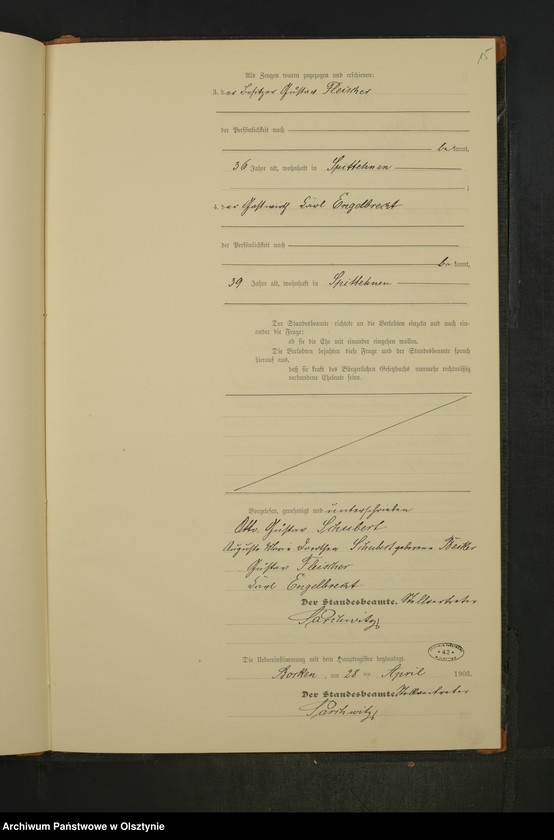 15
Als Zeugen waren zugezogen und erschienen:
3. der Besitzer Gustav Fleischer
der Persönlichkeit nach
be kannt,
36 Jahre alt, wohnhaft in Spittehnen
;
4. der Gastwirth Karl Engelbrecht
der Persönlichkeit nach
be kannt,
39 Jahre alt, wohnhaft in Spittehnen
Der Standesbeamte richtete an die Verlobten einzeln und nach ein-
ander die Frage:
ob sie die Ehe mit einander eingehen wollen.
Die Verlobten bejahten diese Frage und der Standesbeamte sprach
hierauf aus,
daß sie kraft des Bürgerlichen Gesetzbuchs nunmehr rechtmäßig
verbundene Eheleute seien.
Vorgelesen, genehmigt und unterschrieben
Otto Gustav Schubert
Auguste Marie Dorothea Schubert geborene Becker
Gustav Fleischer
Karl Engelbrecht
Der Standesbeamte. Stellvertreter
Parschwitz
Die Uebereinstimmung mit dem Hauptregister beglaubigt.
Rosken, am 28 ten April 1903.
Der Standesbeamte. Stellvertreter
Parschwitz
* 43 *
Archiwum Państwowe w Olsztynie